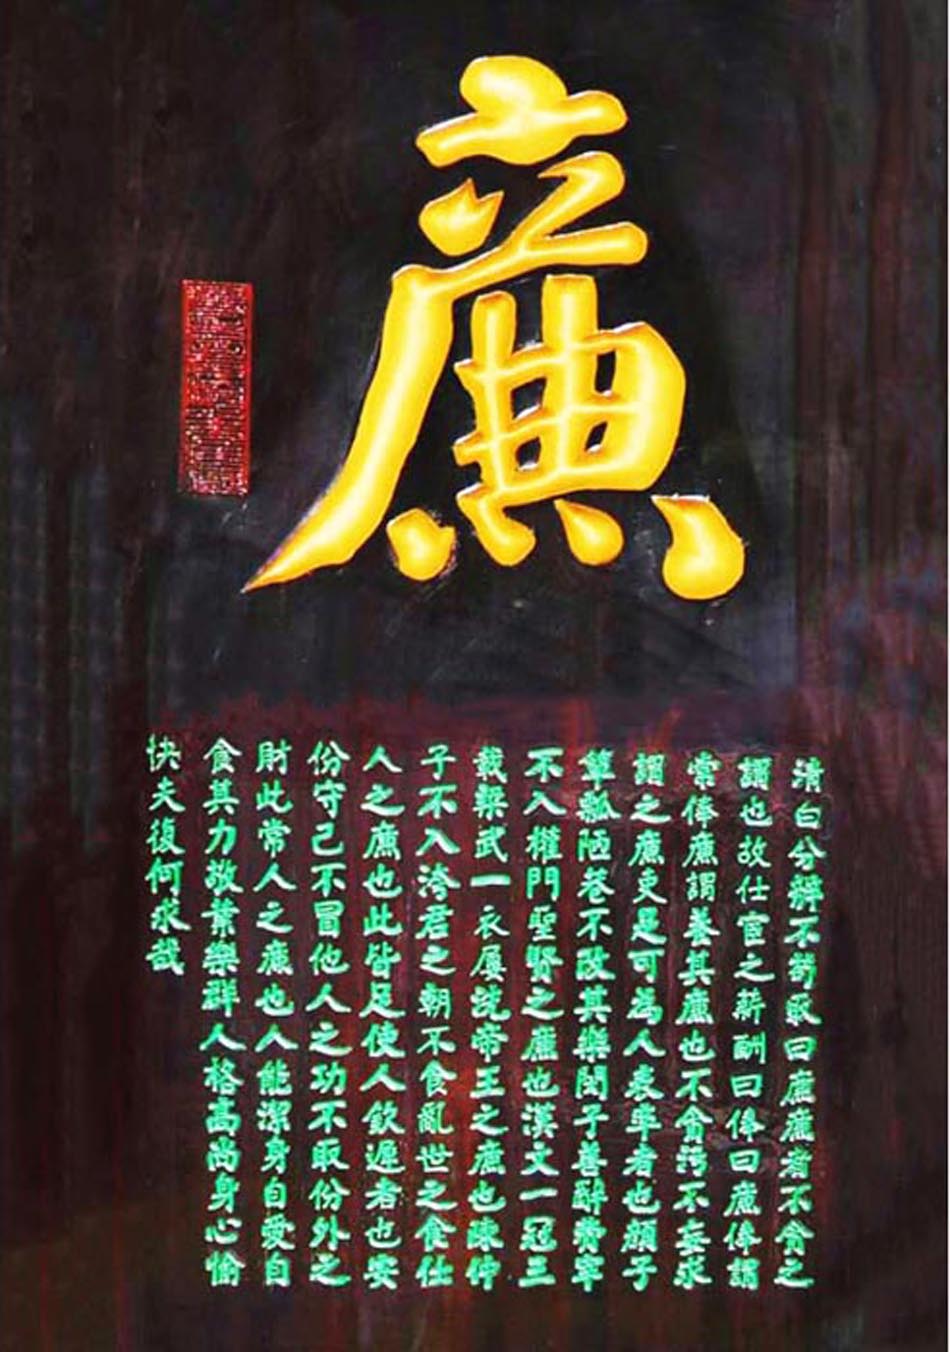 廉
清白分辨不苟取曰廉廉者不貪之
謂也故仕宦之薪酬曰俸曰廉俸謂
常俸廉謂養其廉也不貪污不妄求
謂之廉吏是可為人表率者也顏子
簞瓢陋巷不改其樂閔子善辭費宰
不入權門聖賢之廉也漢文一冠三
載梁武一衣屢浣帝王之廉也陳仲
子不入洿君之朝不食亂世之食仕
人之廉也此皆足使人欽遲者也安
份守己不冒他人之功不取份外之
財此常人之廉也人能潔身自愛自
食其力敬業樂群人格高尚身心愉
快夫復何求哉